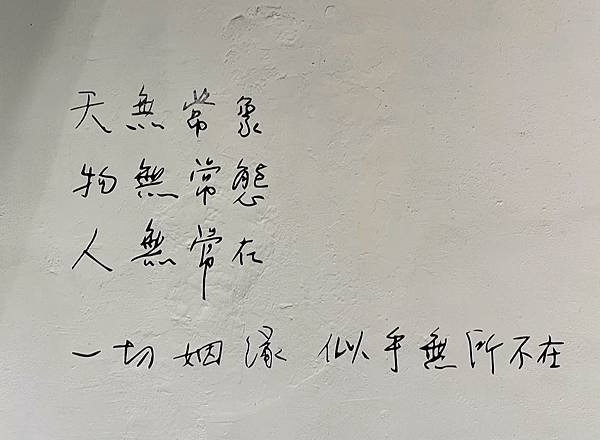 天無常象
物無常態
人無常在
一切姻緣 似乎無所不在